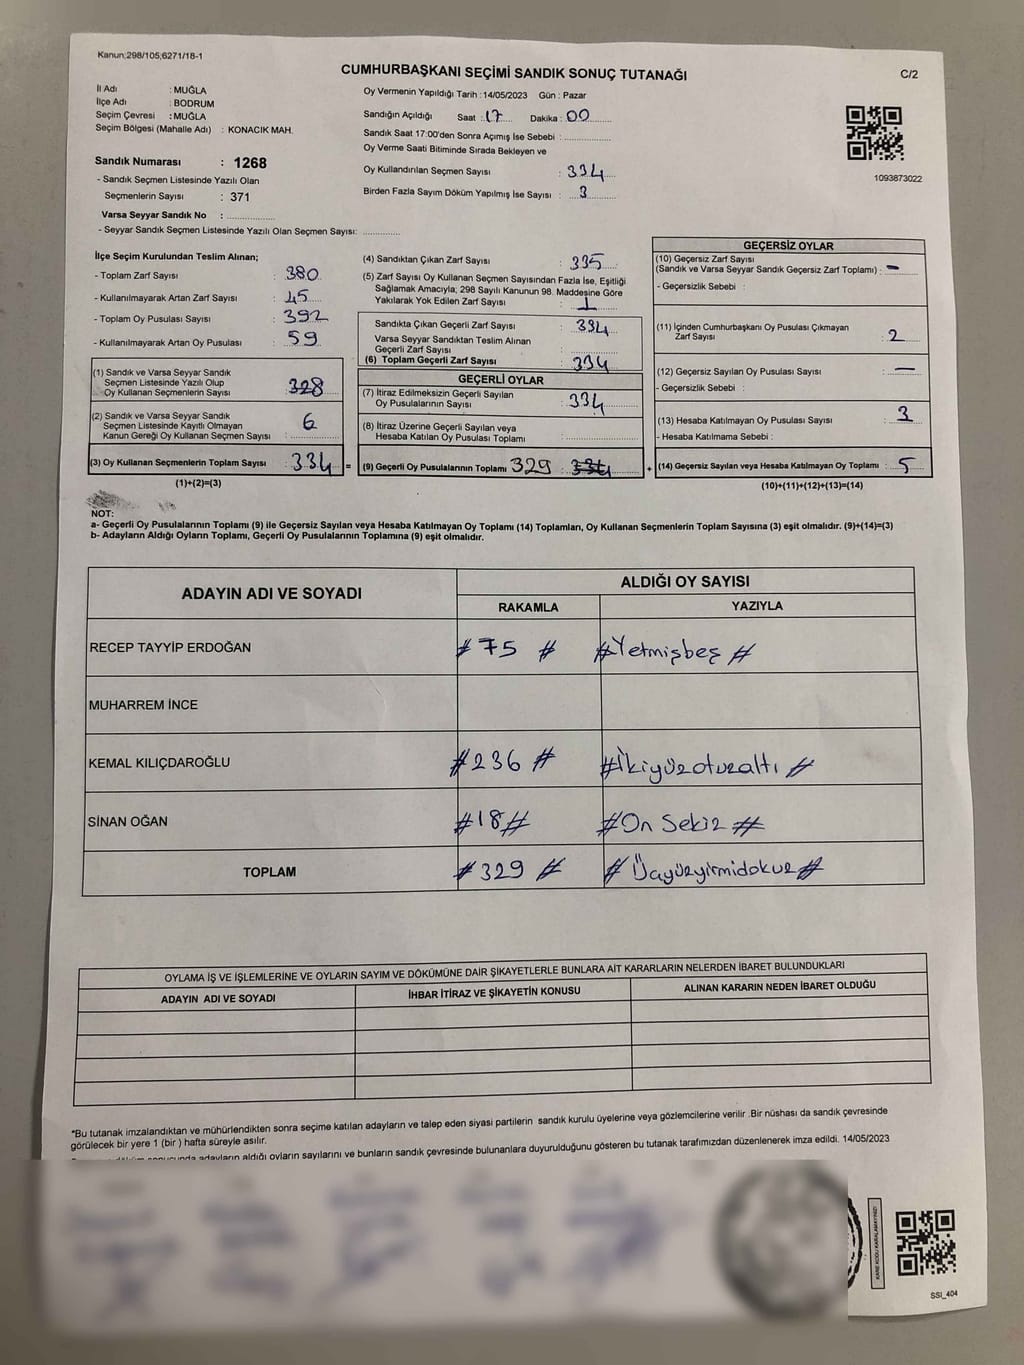 Kanun;298/105;6271/18-1
CUMHURBAŞKANI SEÇİMİ SANDIK SONUÇ TUTANAĞI
C/2
İl Adı : MUĞLA
İlçe Adı : BODRUM
Seçim Çevresi : MUĞLA
Seçim Bölgesi (Mahalle Adı) : KONACIK MAH.
Sandık Numarası : 1268
- Sandık Seçmen Listesinde Yazılı Olan
Seçmenlerin Sayısı : 371
Varsa Seyyar Sandık No : ................
- Seyyar Sandık Seçmen Listesinde Yazılı Olan Seçmen Sayısı: ............
Oy Vermenin Yapıldığı Tarih : 14/05/2023 Gün : Pazar
Sandığın Açıldığı Saat : 17 Dakika : 00
Sandık Saat 17:00'den Sonra Açımış İse Sebebi : ................
Oy Verme Saati Bitiminde Sırada Bekleyen ve
Oy Kullandırılan Seçmen Sayısı : 334
Birden Fazla Sayım Döküm Yapılmış İse Sayısı : 3
1093873022
İlçe Seçim Kurulundan Teslim Alınan;
- Toplam Zarf Sayısı : 380
- Kullanılmayarak Artan Zarf Sayısı : 45
- Toplam Oy Pusulası Sayısı : 392
- Kullanılmayarak Artan Oy Pusulası : 59
(1) Sandık ve Varsa Seyyar Sandık
Seçmen Listesinde Yazılı Olup
Oy Kullanan Seçmenlerin Sayısı : 328
(2) Sandık ve Varsa Seyyar Sandık
Seçmen Listesinde Kayıtlı Olmayan
Kanun Gereği Oy Kullanan Seçmen Sayısı : 6
(3) Oy Kullanan Seçmenlerin Toplam Sayısı : 334 =
(1)+(2)=(3)
(4) Sandıktan Çıkan Zarf Sayısı : 335
(5) Zarf Sayısı Oy Kullanan Seçmen Sayısından Fazla İse, Eşitliği
Sağlamak Amacıyla; 298 Sayılı Kanunun 98. Maddesine Göre
Yakılarak Yok Edilen Zarf Sayısı : 1
Sandıkta Çıkan Geçerli Zarf Sayısı : 334
Varsa Seyyar Sandıktan Teslim Alınan
Geçerli Zarf Sayısı : ................
(6) Toplam Geçerli Zarf Sayısı : 334
GEÇERLİ OYLAR
(7) İtiraz Edilmeksizin Geçerli Sayılan
Oy Pusulalarının Sayısı : 334
(8) İtiraz Üzerine Geçerli Sayılan veya
Hesaba Katılan Oy Pusulası Toplamı : ................
(9) Geçerli Oy Pusulalarının Toplamı 329 : 334 +
GEÇERSİZ OYLAR
(10) Geçersiz Zarf Sayısı
(Sandık ve Varsa Seyyar Sandık Geçersiz Zarf Toplamı) : -
- Geçersizlik Sebebi :
(11) İçinden Cumhurbaşkanı Oy Pusulası Çıkmayan
Zarf Sayısı : 2
(12) Geçersiz Sayılan Oy Pusulası Sayısı : -
- Geçersizlik Sebebi :
(13) Hesaba Katılmayan Oy Pusulası Sayısı : 3
- Hesaba Katılmama Sebebi :
(14) Geçersiz Sayılan veya Hesaba Katılmayan Oy Toplamı : 5
(10)+(11)+(12)+(13)=(14)
NOT:
a- Geçerli Oy Pusulalarının Toplamı (9) ile Geçersiz Sayılan veya Hesaba Katılmayan Oy Toplamı (14) Toplamları, Oy Kullanan Seçmenlerin Toplam Sayısına (3) eşit olmalıdır. (9)+(14)=(3)
b- Adayların Aldığı Oyların Toplamı, Geçerli Oy Pusulalarının Toplamına (9) eşit olmalıdır.
ADAYIN ADI VE SOYADI ALDIĞI OY SAYISI
RAKAMLA YAZIYLA
RECEP TAYYİP ERDOĞAN #75# #Yetmişbeş#
MUHARREM İNCE
KEMAL KILIÇDAROĞLU #236# #İkiyüzotuzaltı#
SİNAN OĞAN #18# #On Sekiz#
TOPLAM #329# #Üçyüzyirmidokuz#
OYLAMA İŞ VE İŞLEMLERİNE VE OYLARIN SAYIM VE DÖKÜMÜNE DAİR ŞİKAYETLERLE BUNLARA AİT KARARLARIN NELERDEN İBARET BULUNDUKLARI
ADAYIN ADI VE SOYADI İHBAR İTİRAZ VE ŞİKAYETİN KONUSU ALINAN KARARIN NEDEN İBARET OLDUĞU
*Bu tutanak imzalandıktan ve mühürlendikten sonra seçime katılan adayların ve talep eden siyasi partilerin sandık kurulu üyelerine veya gözlemcilerine verilir .Bir nüshası da sandık çevresinde
görülecek bir yere 1 (bir ) hafta süreyle asılır.
sonucunda adayların aldığı oyların sayılarını ve bunların sandık çevresinde bulunanlara duyurulduğunu gösteren bu tutanak tarafımızdan düzenlenerek imza edildi. 14/05/2023
KARE KODU KARALAMAYINIZ!
SSI_404